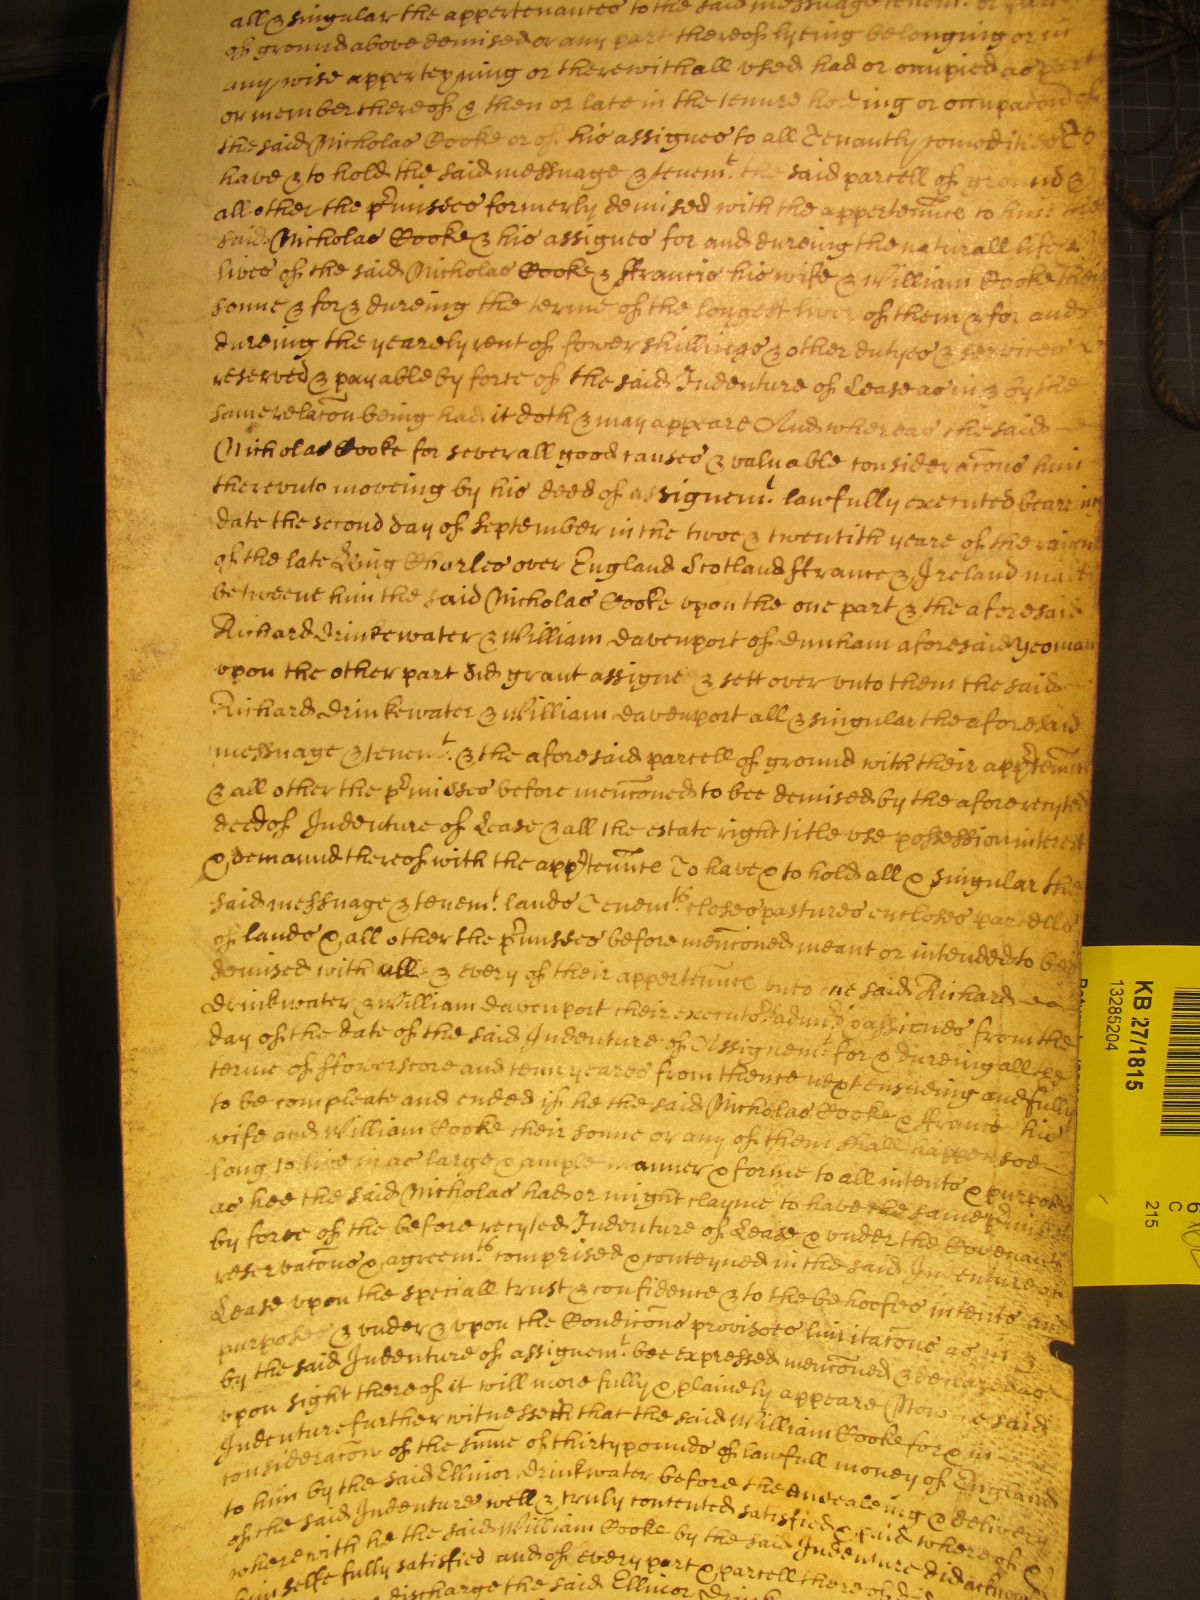 all & singular the appertenances to the said messuage tenemt. or
of ground above demised or any part thereof lyeing belonging or in
any wise apperteyning or therewithall vsed had or occupied as part
or member thereof & then or late in the tenure holding or occupacon of
the said Nicholas Cooke or of his assignes to all Tenantly comodities To
have & to hold the said messuage & tenemt. the said parcell of ground &
all other the p'misses formerly demised with the appertennce to him the
said Nicholas Cooke & his assignes for and dureing the naturall life &
lives of the said Nicholas Cooke & ffrancis his wife & William Cooke their
sonne & for & dureing the terme of the longest liver of them & for and
dureing the yearely rent of fower shillings & other dutyes & services
reserved & payable by force of the said Indenture of Lease as in & by the
same relacon being had it doth & may appeare And whereas the said
Nicholas Cooke for severall good causes & valuable consideracons him
therevnto moveing by his deed of assignemt. lawfully executed beareing
date the second day of September in the twoe & twentith yeare of the raigne
of the late King Charles over England Scotland ffrance & Ireland
betweene him the said Nicholas Cooke vpon the one part & the aforesaid
Richard Drinkewater & William Davenport of Dunham aforesaid yeoman
vpon the other part did grant assigne & sett over vnto them the said
Richard Drinkewater & William Davenport all & singular the aforesaid
messuage & tenemt. & the aforesaid parcell of ground with their app'tennce
& all other the p'misses before menconed to bee demised by the afore recyted
deed of Indenture of Lease & all the estate right title vse possession interest
& demaund thereof with the app'tennce To have & to hold all & singular the
said messuage & tenemt. lands Tenemts closes pastures encloses parcells
of lands & all other the p'misses before menconed meant or intended to bee
demised with all & every of their appertennce vnto the said Richard
Drinkwater & William Davenport their executors admrs & assignes from the
day of the date of the said Indenture of Assignemt. for & dureing all the
terme of ffowerscore and tenn yeares from thence next ensueing and fully
to be compleate and ended if he the said Nicholas Cooke & ffrances his
wife and William Cooke their sonne or any of them shall happen soe
long to live in as large & ample manner & forme to all intents & purposes
as hee the said Nicholas had or might clayme to have the same
by force of the before recyted Indenture of Lease & vnder the Covenants
reservacons & agreemts comprised & conteyned in the said Indenture of
Lease vpon the speciall trust & confidence & to the behoofes intents and
purposes & vnder & vpon the Condicons provisoes limitacons as in &
by the said Indenture of assignemt. bee expressed menconed & declared as
vpon sight thereof it will more fully & plainely appeare Now the said
Indenture further witnesseth that the said William Cooke for & in
consideracon of the sume of thirty pounds of lawfull money of England
to him by the said Ellinor Drinkwater before the ensealeing & delivery
of the said Indenture well & truly contented satisfied & paid whereof &
wherewith he the said William Cooke by the said Indenture did acknow
himselfe fully satisfied and of every part & parcell thereof did
discharge the said Ellinor
KB 27/1815
13285204
215
C